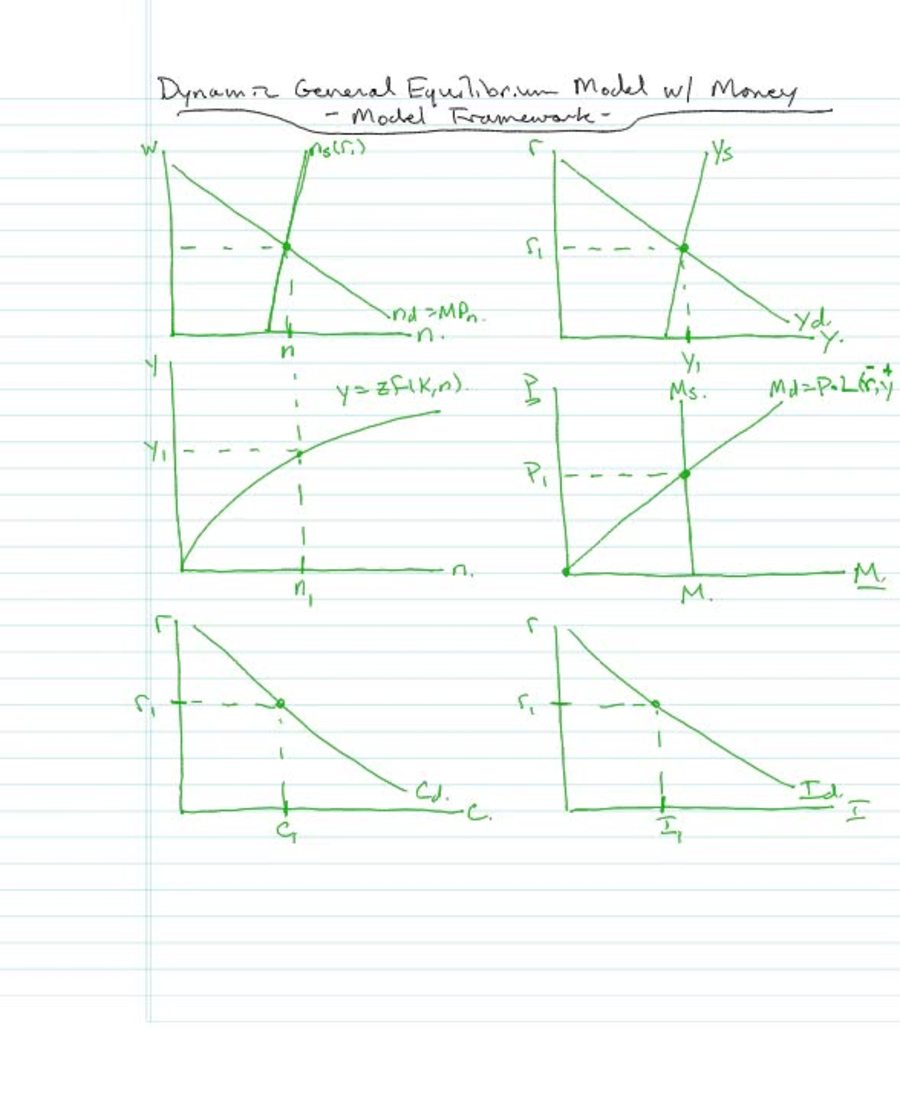 Dynamic General Equilibrium Model w/ Money
- Model Framework -
w
ns(r₁)
nd = MPn.
n.
n
r
Ys
r₁
Yd.
Y.
Y₁
y
y = zF(K,n).
Y₁
n.
n₁
P
Ms.
Md = P·L(r̄,y⁺
P₁
M.
M.
r
r₁
Cd.
C.
C₁
r
r₁
Id.
I
I₁